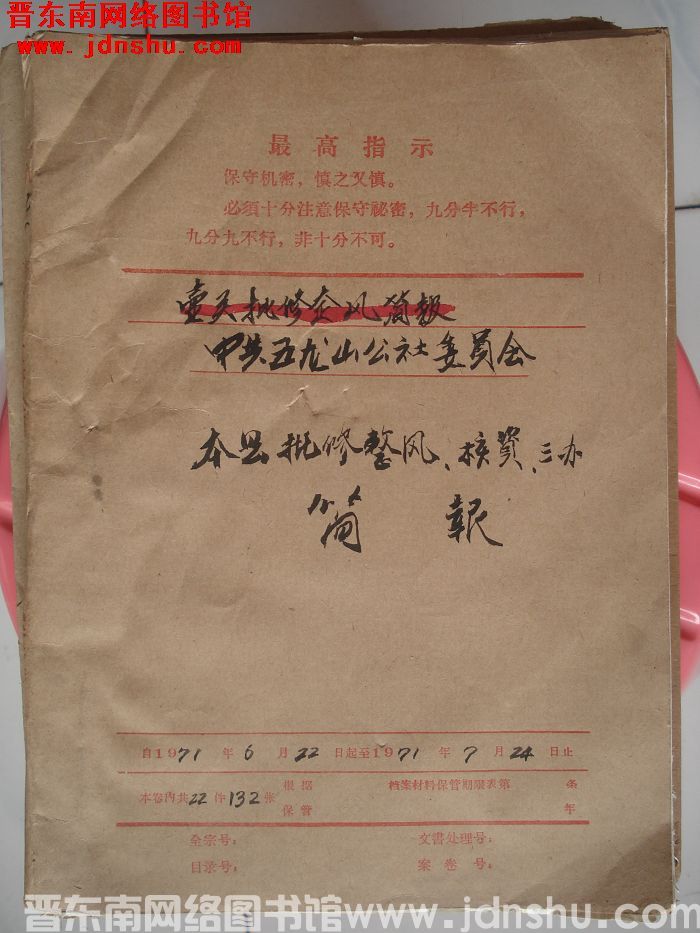 晋东南网络图书馆
www.jdnshu.com
最高指示
保守机密，慎之又慎。
必须十分注意保守祕密，九分半不行，
九分九不行，非十分不可。
壶关批修整风简报
中共五龙山公社委员会
本县批修整风、核资、三办
简报
自1971年6月22日起至1971年7月24日止
本卷内共22件132张 根据 保管 档案材料保管期限表第 条 年
全宗号： 文書处理号：
目录号： 案卷号：
晋东南网络图书馆 www.jdnshu.com